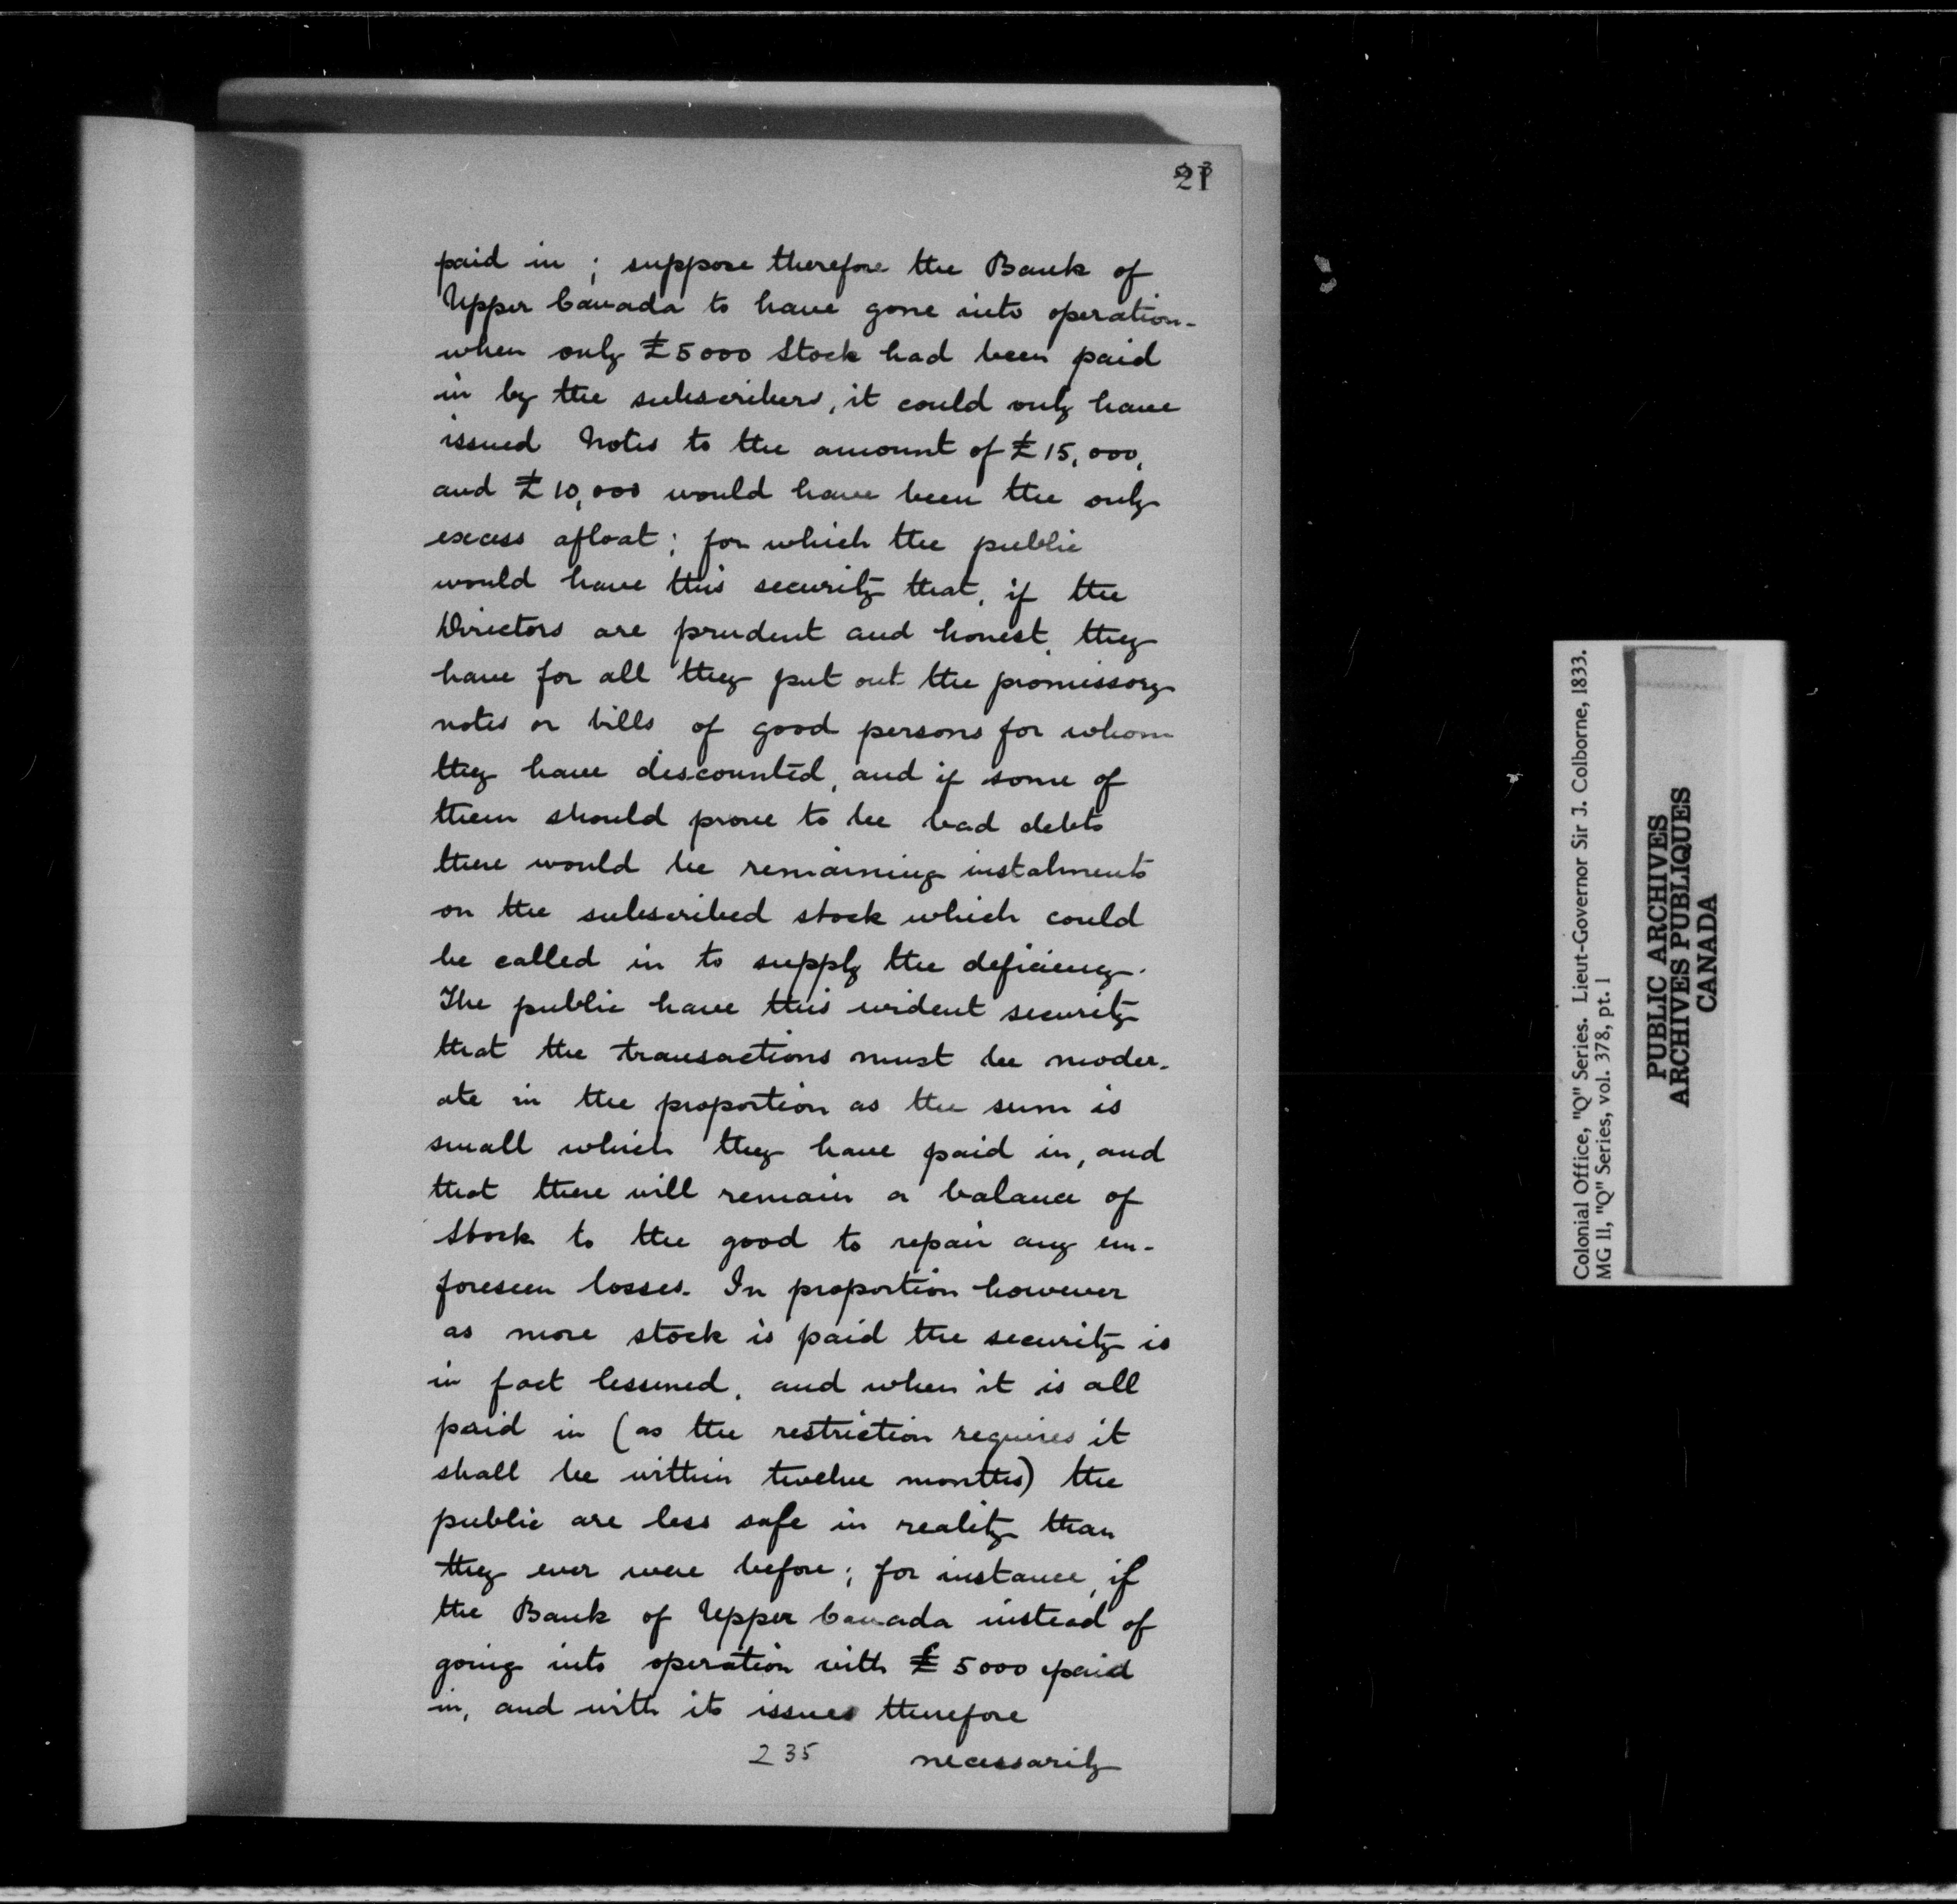 21
paid in ; suppose therefore the Bank of
Upper Canada to have gone into operation-
when only £5000 Stock had been paid
in by the subscribers, it could only have
issued Notes to the amount of £15,000,
and £10,000 would have been the only
excess afloat; for which the public
would have this security that, if the
Directors are prudent and honest, they
have for all they put out the promissory
notes or bills of good persons for whom
they have discounted, and if some of
them should prove to be bad debts
there would be remaining instalments
on the subscribed stock which could
be called in to supply the deficiency.
The public have this evident security
that the transactions must be moder-
ate in the proportion as the sum is
small which they have paid in, and
that there will remain a balance of
Stock to the good to repair any un-
foreseen losses. In proportion however
as more stock is paid the security is
in fact lessened, and when it is all
paid in (as the restriction requires it
shall be within twelve months) the
public are less safe in reality than
they ever were before; for instance, if
the Bank of Upper Canada instead of
going into operation with £5000 paid
in, and with its issues therefore
235 necessarily
Colonial Office, "Q" Series. Lieut-Governor Sir J. Colborne, 1833.
MG 11, "Q" Series, vol. 378, pt. 1
PUBLIC ARCHIVES
ARCHIVES PUBLIQUES
CANADA